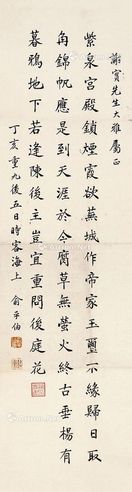 先生大雅屬正
紫泉宮殿鎖煙霞欲蕪城作帝家玉璽不緣歸日取
角錦帆應是到天涯於今腐草無螢火終古垂楊有
暮鴉地下若逢陳後主豈宜重問後庭花
丁亥重九後五日時客海上 俞平伯